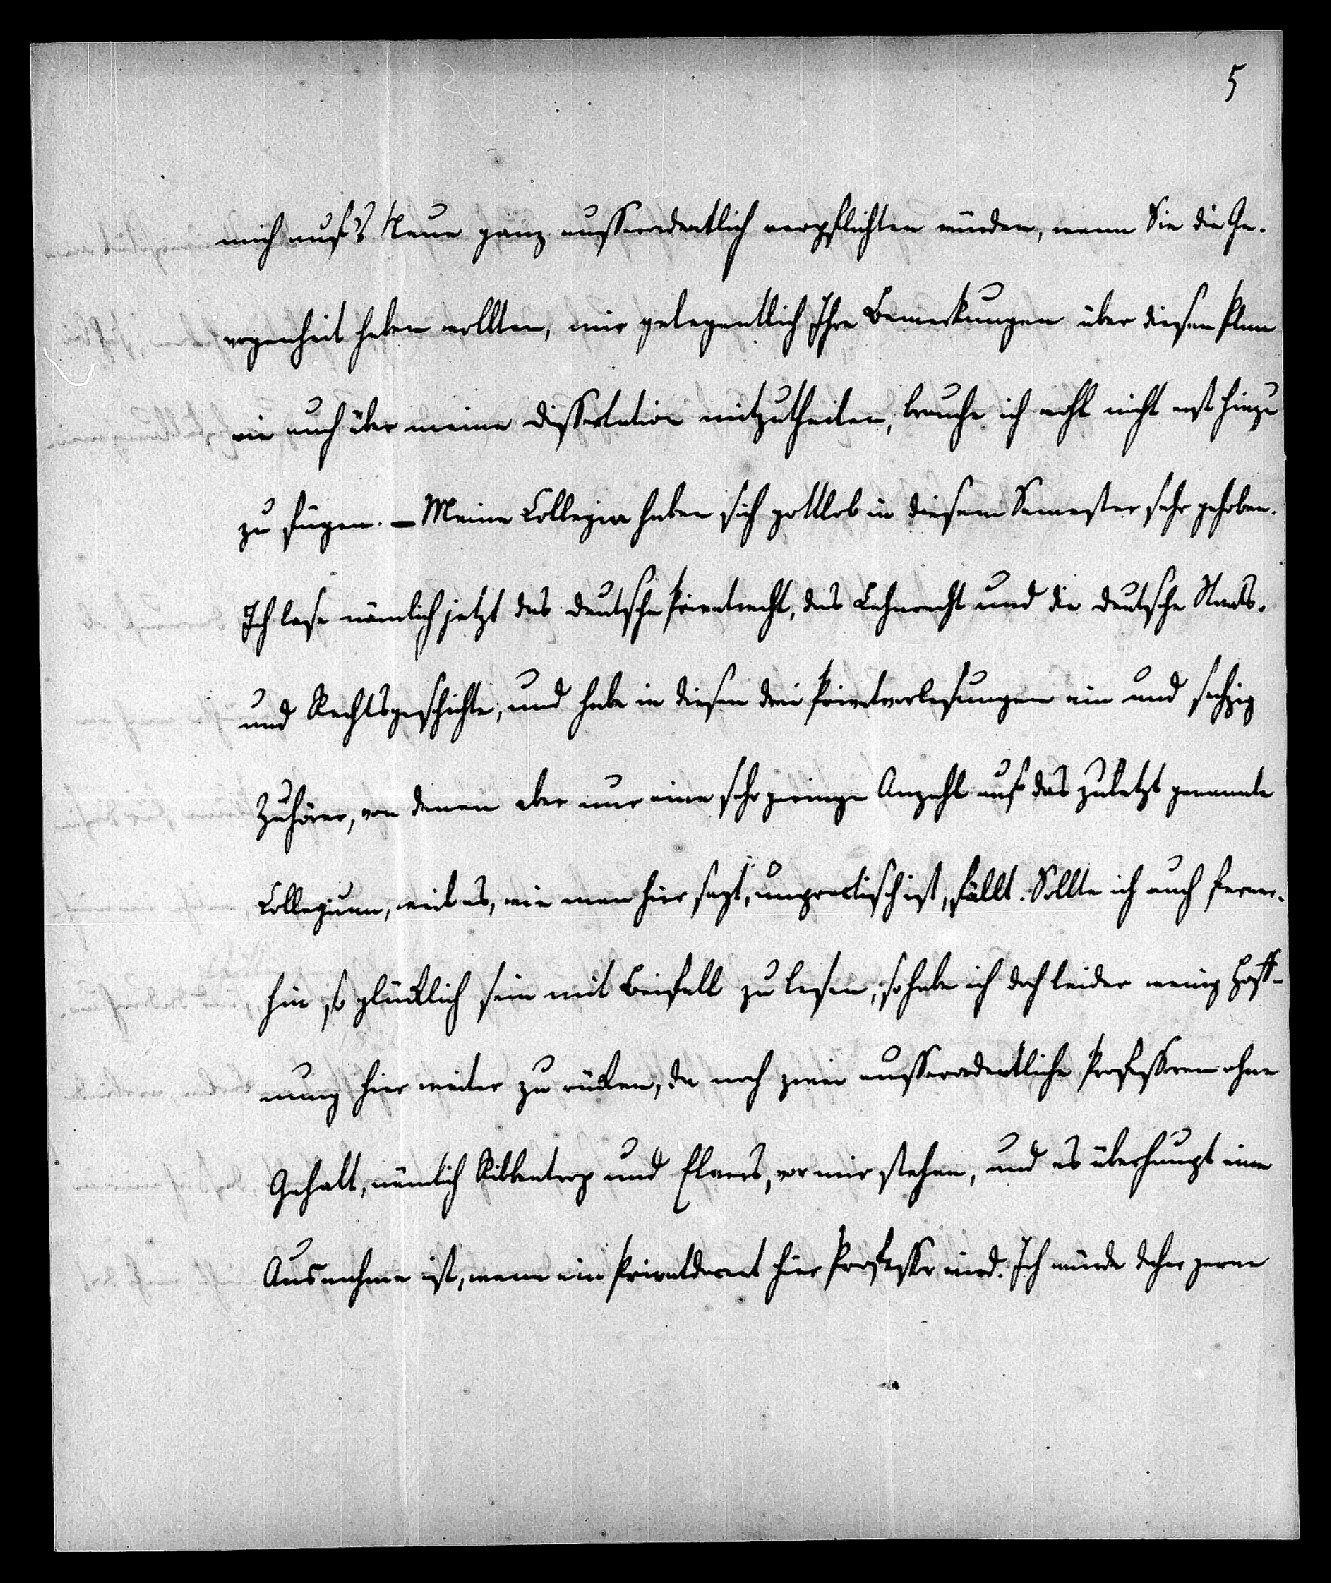 5
mich auf's Neue ganz ausserordentlich verpflichten würden, wenn Sie die Ge-
wogenheit haben wollten, mir gelegentlich Ihre Bemerkungen über diesen Plan
wie auch über meine Dissertation mitzutheilen, brauche ich wohl nicht erst hinzu
zu fügen. – Meine Collegia haben sich gottlob in diesem Semester sehr gehoben.
Ich lese nämlich jetzt das deutsche Privatrecht, das Lehnrecht und die deutsche Staats-
und Rechtsgeschichte, und habe in diesen drei Privatvorlesungen ein und sechzig
Zuhörer, von denen aber nur eine sehr geringe Anzahl auf das zuletzt genannte
Collegium, weil es, wie man hier sagt, unpractisch ist, fällt. Sollte ich auch ferner-
hin so glücklich sein mit Beifall zu lesen, so habe ich doch leider wenig Hoff-
nung hier weiter zu rücken, da noch zwei ausserordentliche Professoren ohne
Gehalt, nämlich Ribbentrop und Elvers, vor mir stehen, und es überhaupt eine
Ausnahme ist, wenn ein Privatdocent hier Professor wird. Ich würde daher gerne